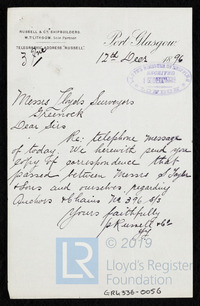 RUSSELL & CO. SHIPBUILDERS.
W. T. LITHGOW, Sole Partner
TELEGRAPHIC ADDRESS "RUSSELL".
Port-Glasgow
12th Decr 1896
Messrs Lloyds Surveyors
Greenock
Dear Sirs
Re: telephone message
of today. We herewith send you
copy of correspondence that
passed between Messrs S. Taylor
& Sons and ourselves regarding
Anchors & Chains No 396 S/S
Yours faithfully
p Russell & Co
© 2019
Lloyd's Register
Foundation
GRK336-0056